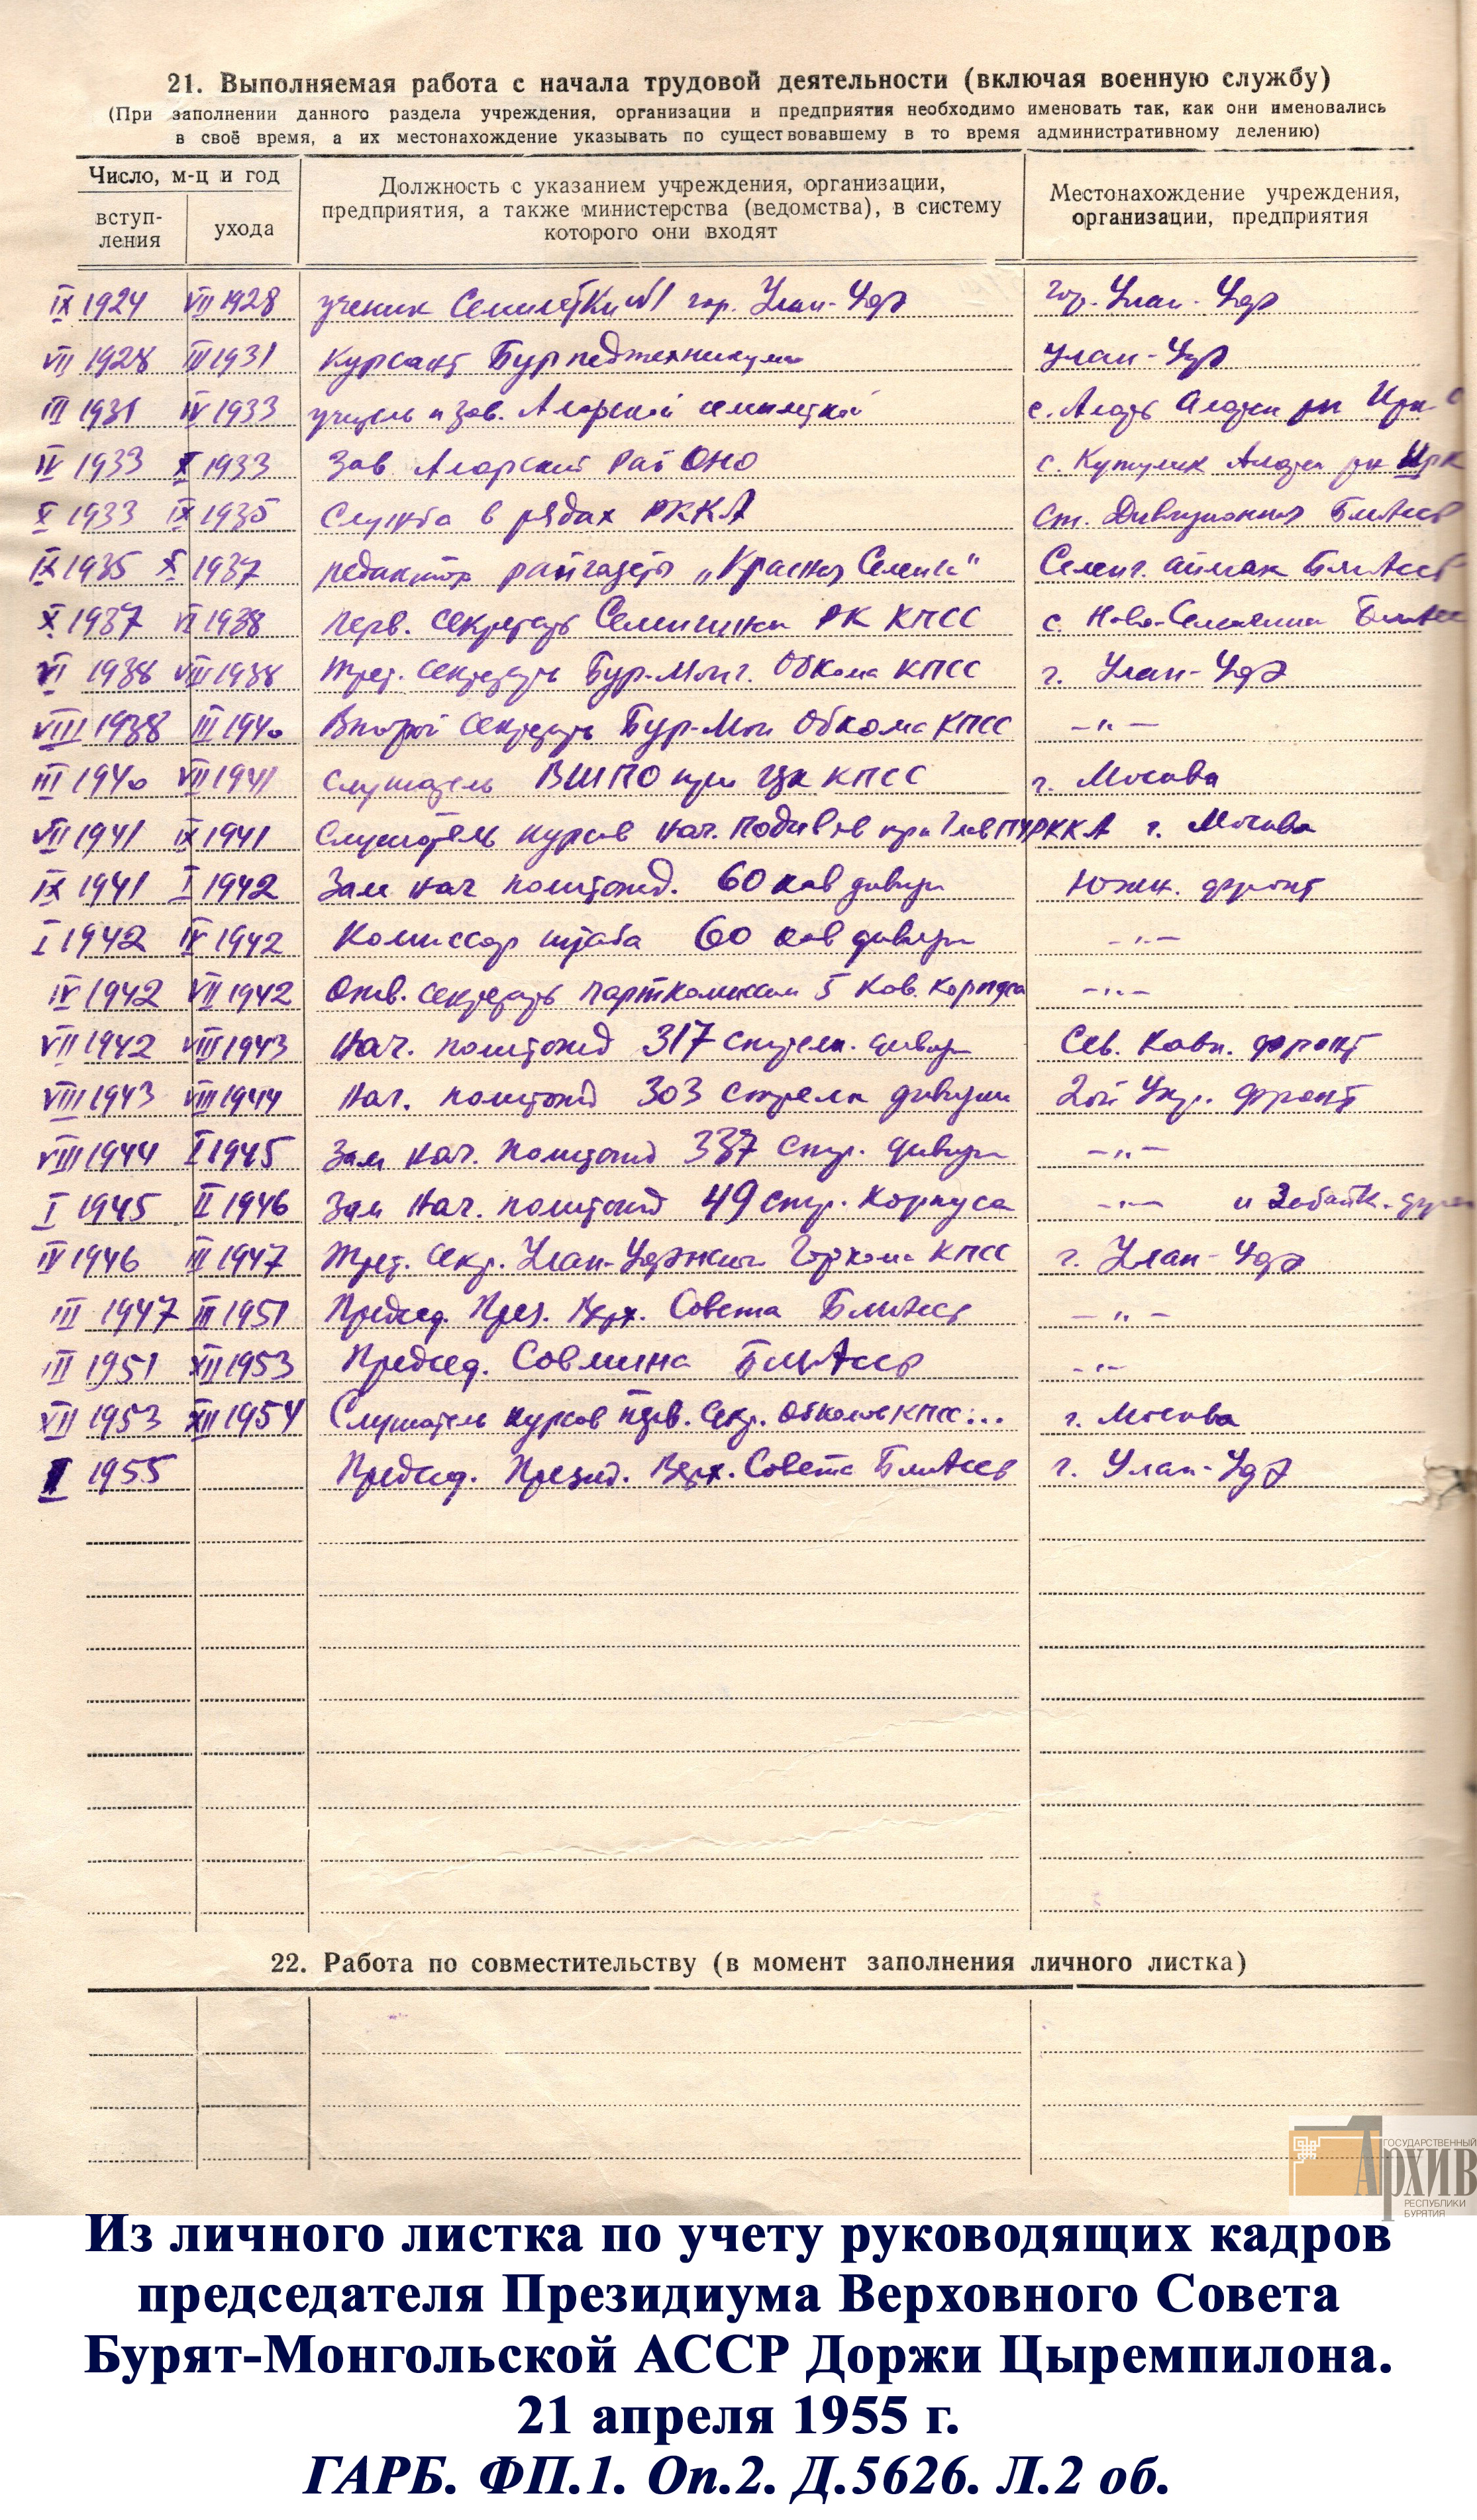 21. Выполняемая работа с начала трудовой деятельности (включая военную службу)
(При заполнении данного раздела учреждения, организации и предприятия необходимо именовать так, как они именовались
в своё время, а их местонахождение указывать по существовавшему в то время административному делению)
Число, м-ц и год
вступ-
ления
ухода
Должность с указанием учреждения, организации,
предприятия, а также министерства (ведомства), в систему
которого они входят
Местонахождение учреждения,
организации, предприятия
IX 1924 VII 1928 ученик Семилетки №1 гор. Улан-Удэ гор. Улан-Удэ
VII 1928 III 1931 Курсант Бурпедтехникума Улан-Удэ
III 1931 IV 1933 учитель и зав. Аларской семилеткой с. Аларь Аларск рн Ирк о
IV 1933 X 1933 Зав Аларский РайОНО с. Кутулик Аларск рн Ирк
X 1933 IX 1935 Служба в рядах РККА Ст. Дивизионная БМАССР
IX 1935 X 1937 редактор райгазеты „Красная Селенга" Селенг. аймак БМАССР
X 1937 VI 1938 Перв. секретарь Селенгинск РК КПСС с. Ново-Селенгинск БМАСС
VI 1938 VIII 1938 Трет. секретарь Бур-Монг. Обкома КПСС г. Улан-Удэ
VIII 1938 III 1940 Второй секретарь Бур-Мон Обкома КПСС —"—
III 1940 VII 1941 Слушатель ВШПО при ЦК КПСС г. Москва
VII 1941 IX 1941 Слушатель курсов нач. подивов при ГлавПУРККА г. Москва
IX 1941 I 1942 Зам нач политотд. 60 кав дивизи Южн. фронт
I 1942 IV 1942 Комиссар штаба 60 кав дивизи —"—
IV 1942 VII 1942 Отв. секретарь парткомиссии 5 Кав. Корпуса —"—
VII 1942 VIII 1943 Нач. политотд 317 стрелк. дивизи Сев. Кавк. фронт
VIII 1943 VIII 1944 Нач. политотд 303 стрелк дивизии 2ой Укр. фронт
VIII 1944 I 1945 Зам нач. политотд 337 стр. дивизи —"—
I 1945 II 1946 Зам нач. политотд 49 стр. Корпуса —"— и Забайк. фрон
IV 1946 III 1947 Трет. секр. Улан-Удэнский Горкома КПСС г. Улан-Удэ
III 1947 III 1951 Председ. През. Верх. Совета БМАССР —"—
III 1951 XII 1953 Председ. Совмина БМАССР —"—
XII 1953 XII 1954 Слушатель курсов перв. секр. Обкомов КПСС... г. Москва
I 1955 Председ. Презид. Верх. Совета БМАССР г. Улан-Удэ
22. Работа по совместительству (в момент заполнения личного листка)
ГОСУДАРСТВЕННЫЙ
Архив
РЕСПУБЛИКИ
БУРЯТИЯ
Из личного листка по учету руководящих кадров
председателя Президиума Верховного Совета
Бурят-Монгольской АССР Доржи Цыремпилона.
21 апреля 1955 г.
ГАРБ. ФП.1. Оп.2. Д.5626. Л.2 об.